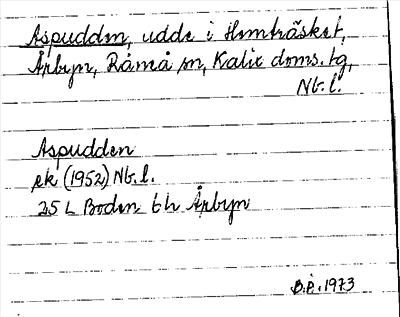 Aspudden, udde i Hemträsket,
Årbyn, Råneå sn, Kalix doms. tg,
Nb. l.
Aspudden
ek (1952) Nb. l.
25 L Boden th Årbyn
B.P. 1973